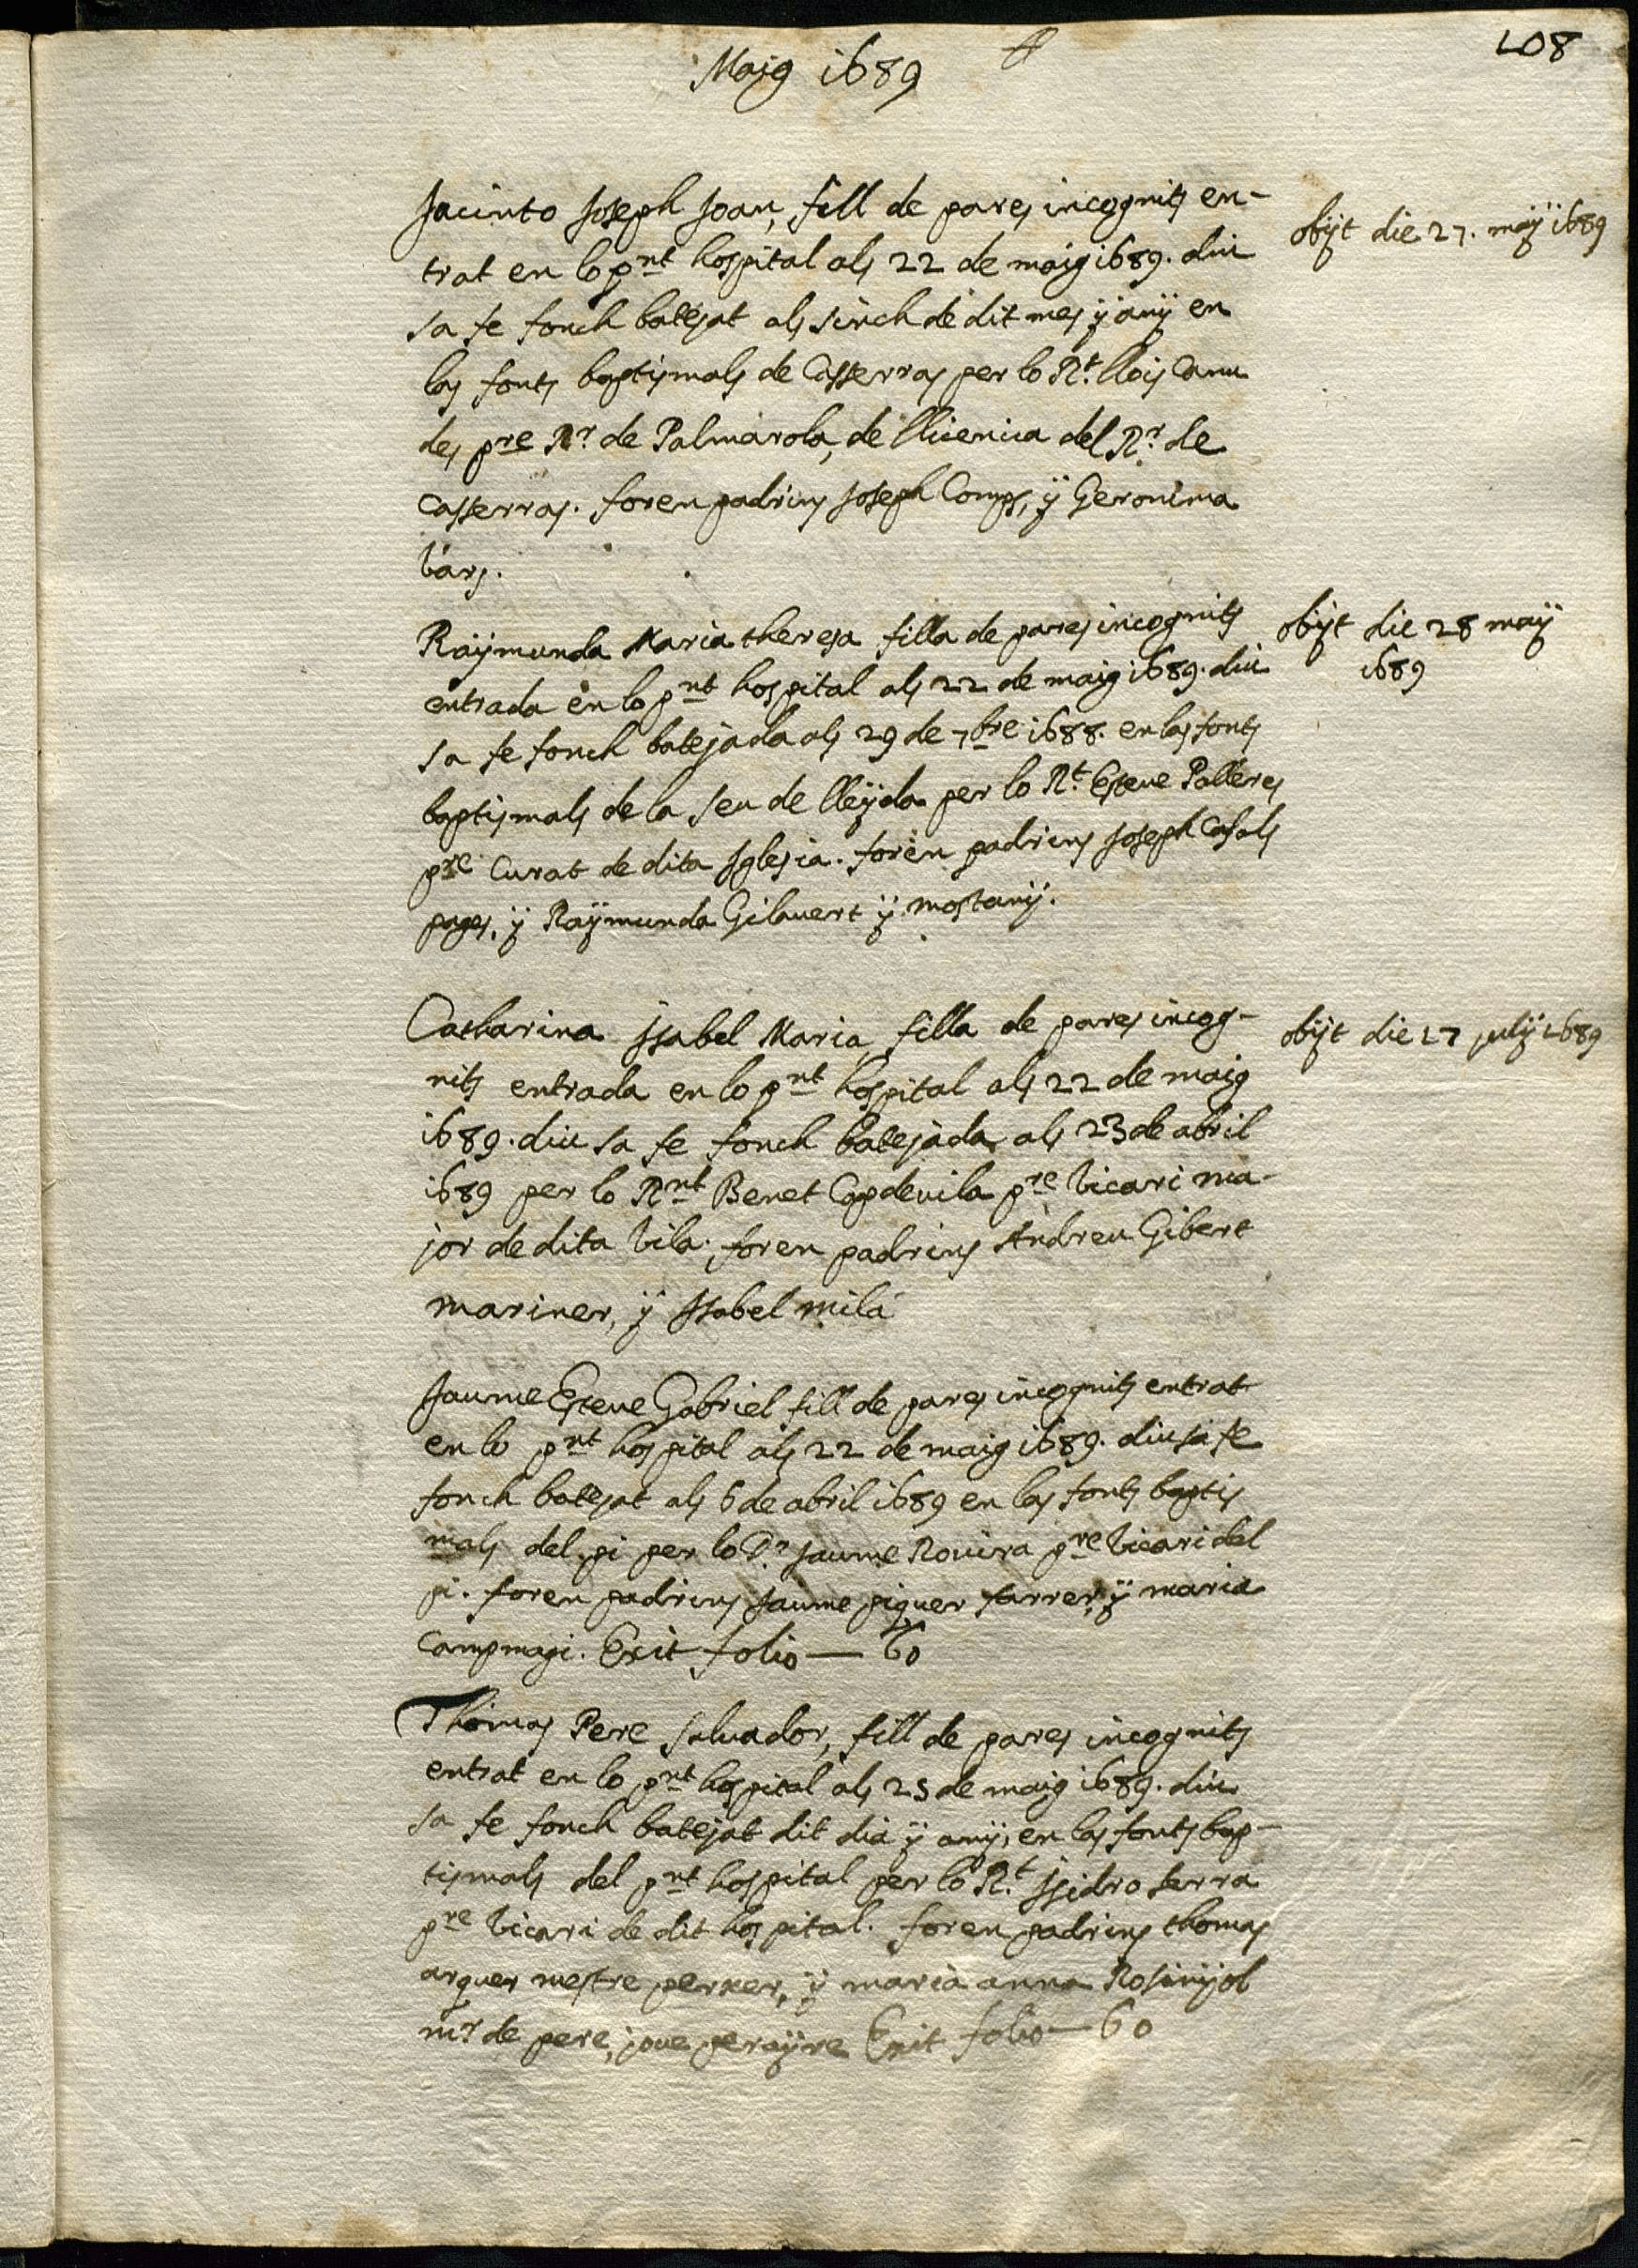 Maig 1689
108
Jacinto Joseph Joan, fill de pares incognits en-
trat en lo pnt hospital als 22 de maig 1689. diu
sa fe fonch batejat als sinch de dit mes ÿ anÿ en
las fonts baptismals de Casserras per lo Rt. llois Canu
des pre Rr. de Palmarola, de llicenica del Rr. de
Casserras. foren padrins Joseph Comps, ÿ Geronima
Vars.
obÿt die 27. maÿ 1689
Raÿmunda Maria theresa filla de pares incognits
entrada en lo pnt hospital als 22 de maig 1689. diu
sa fe fonch batejada als 29 de 7bre 1688. en las fonts
baptismals de la seu de lleÿda per lo Rt. Esteue Palleres
pre Curat de dita Iglesia. foren padrins Joseph Casals
pages, ÿ Raÿmunda Gilauert ÿ mostanÿ.
obÿt die 28 maÿ
1689
Catharina Isabel Maria, filla de pares incog-
nits entrada en lo pnt hospital als 22 de maig
1689. diu sa fe fonch batejada als 23 de abril
1689 per lo Rnt Benet Capdeuila pre Vicari ma-
jor de dita Vila. foren padrins Andreu Gibert
mariner, ÿ Isabel milá
obÿt die 17 julÿ 1689
Jaume Esteue Gabriel fill de pares incognits entrat
en lo pnt hospital als 22 de maig 1689. diu sa fe
fonch batejat als 6 de abril 1689 en las fonts baptis
mals del pi per lo Dr. Jaume Rouira pre Vicari del
pi. foren padrins Jaume piquer farrer, ÿ maria
Campmagi. Exit folio — 60
Thomas Pere saluador, fill de pares incognits
entrat en lo pnt hospital als 23 de maig 1689. diu
sa fe fonch batejat dit dia ÿ anÿ, en las fonts bap-
tismals del pnt hospital per lo Rt. Isidro serra
pre Vicari de dit hospital. foren padrins thomas
arquer mestre perxer, ÿ maria anna Rosinÿol
mr de pere, joue peraÿre Exit folio — 60